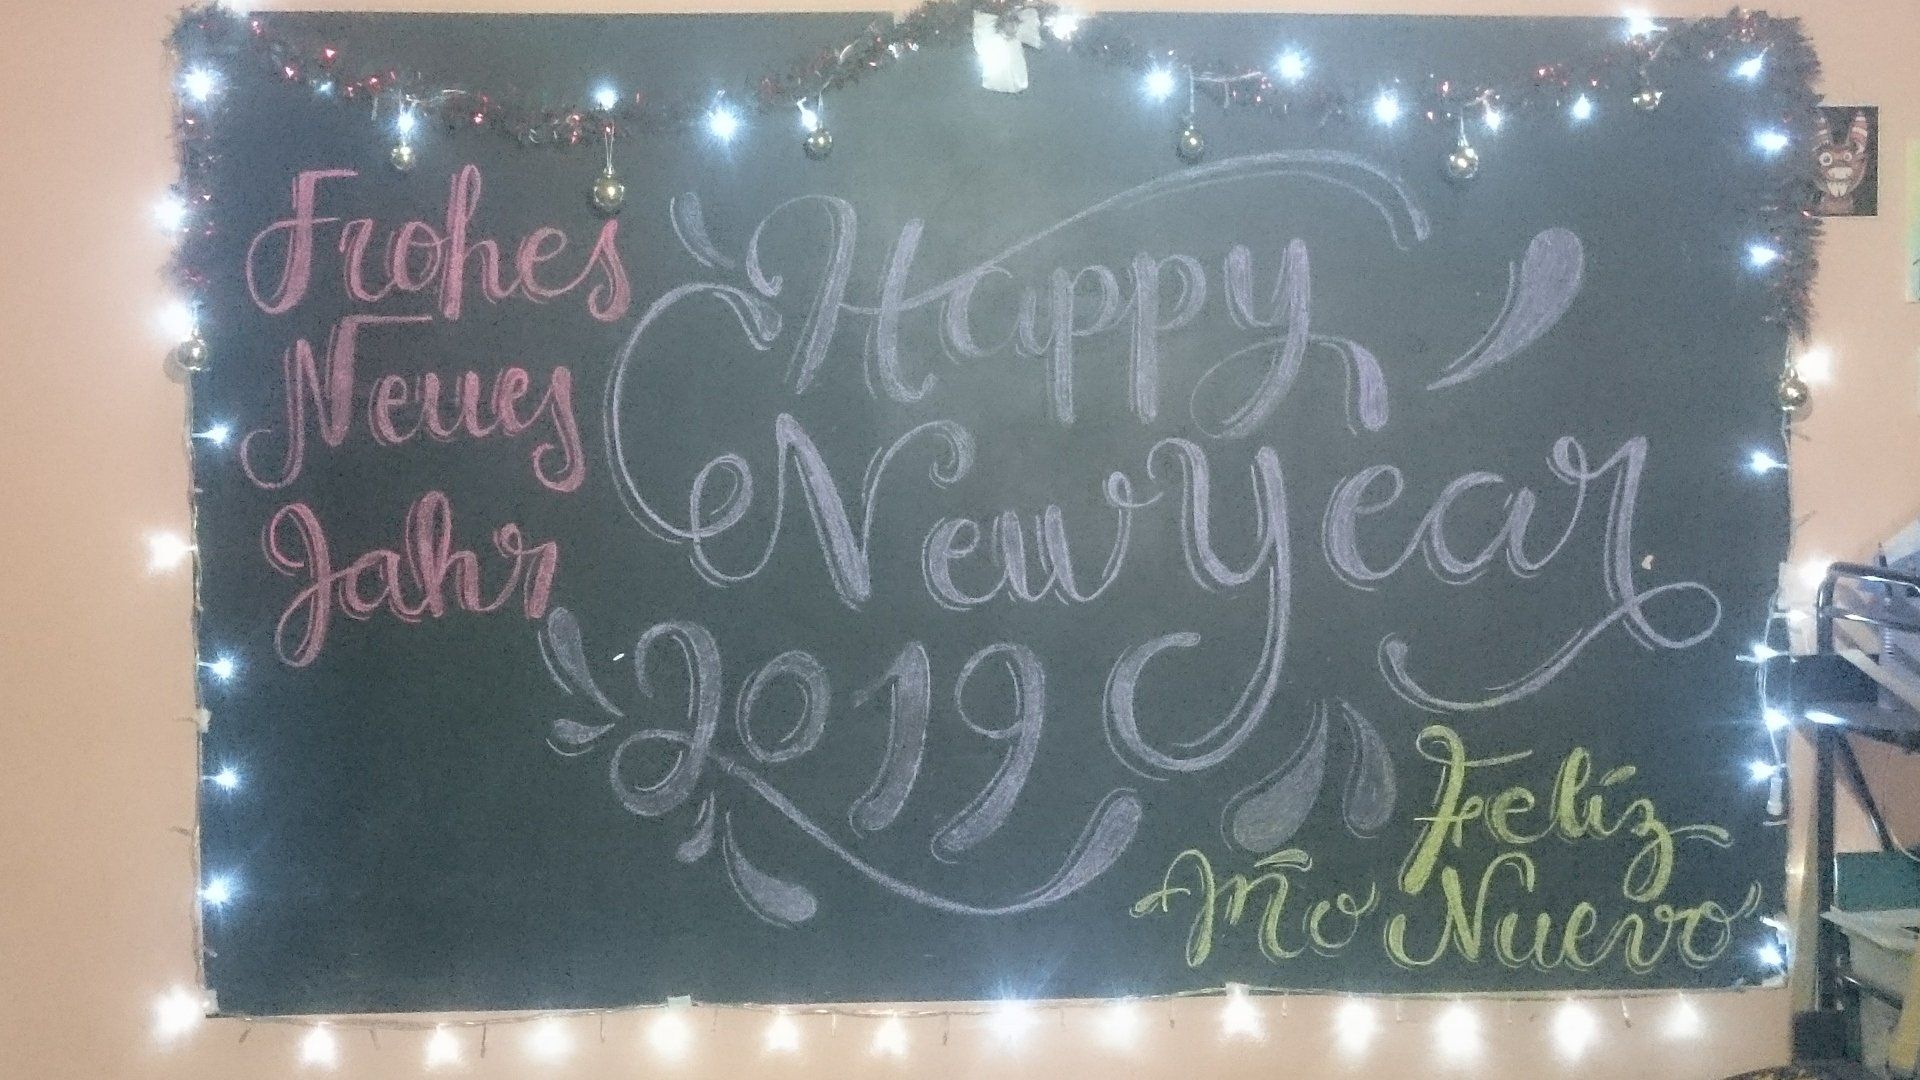 Frohes
Neues
Jahr
Happy
New Year
2019
Felíz
Año Nuevo